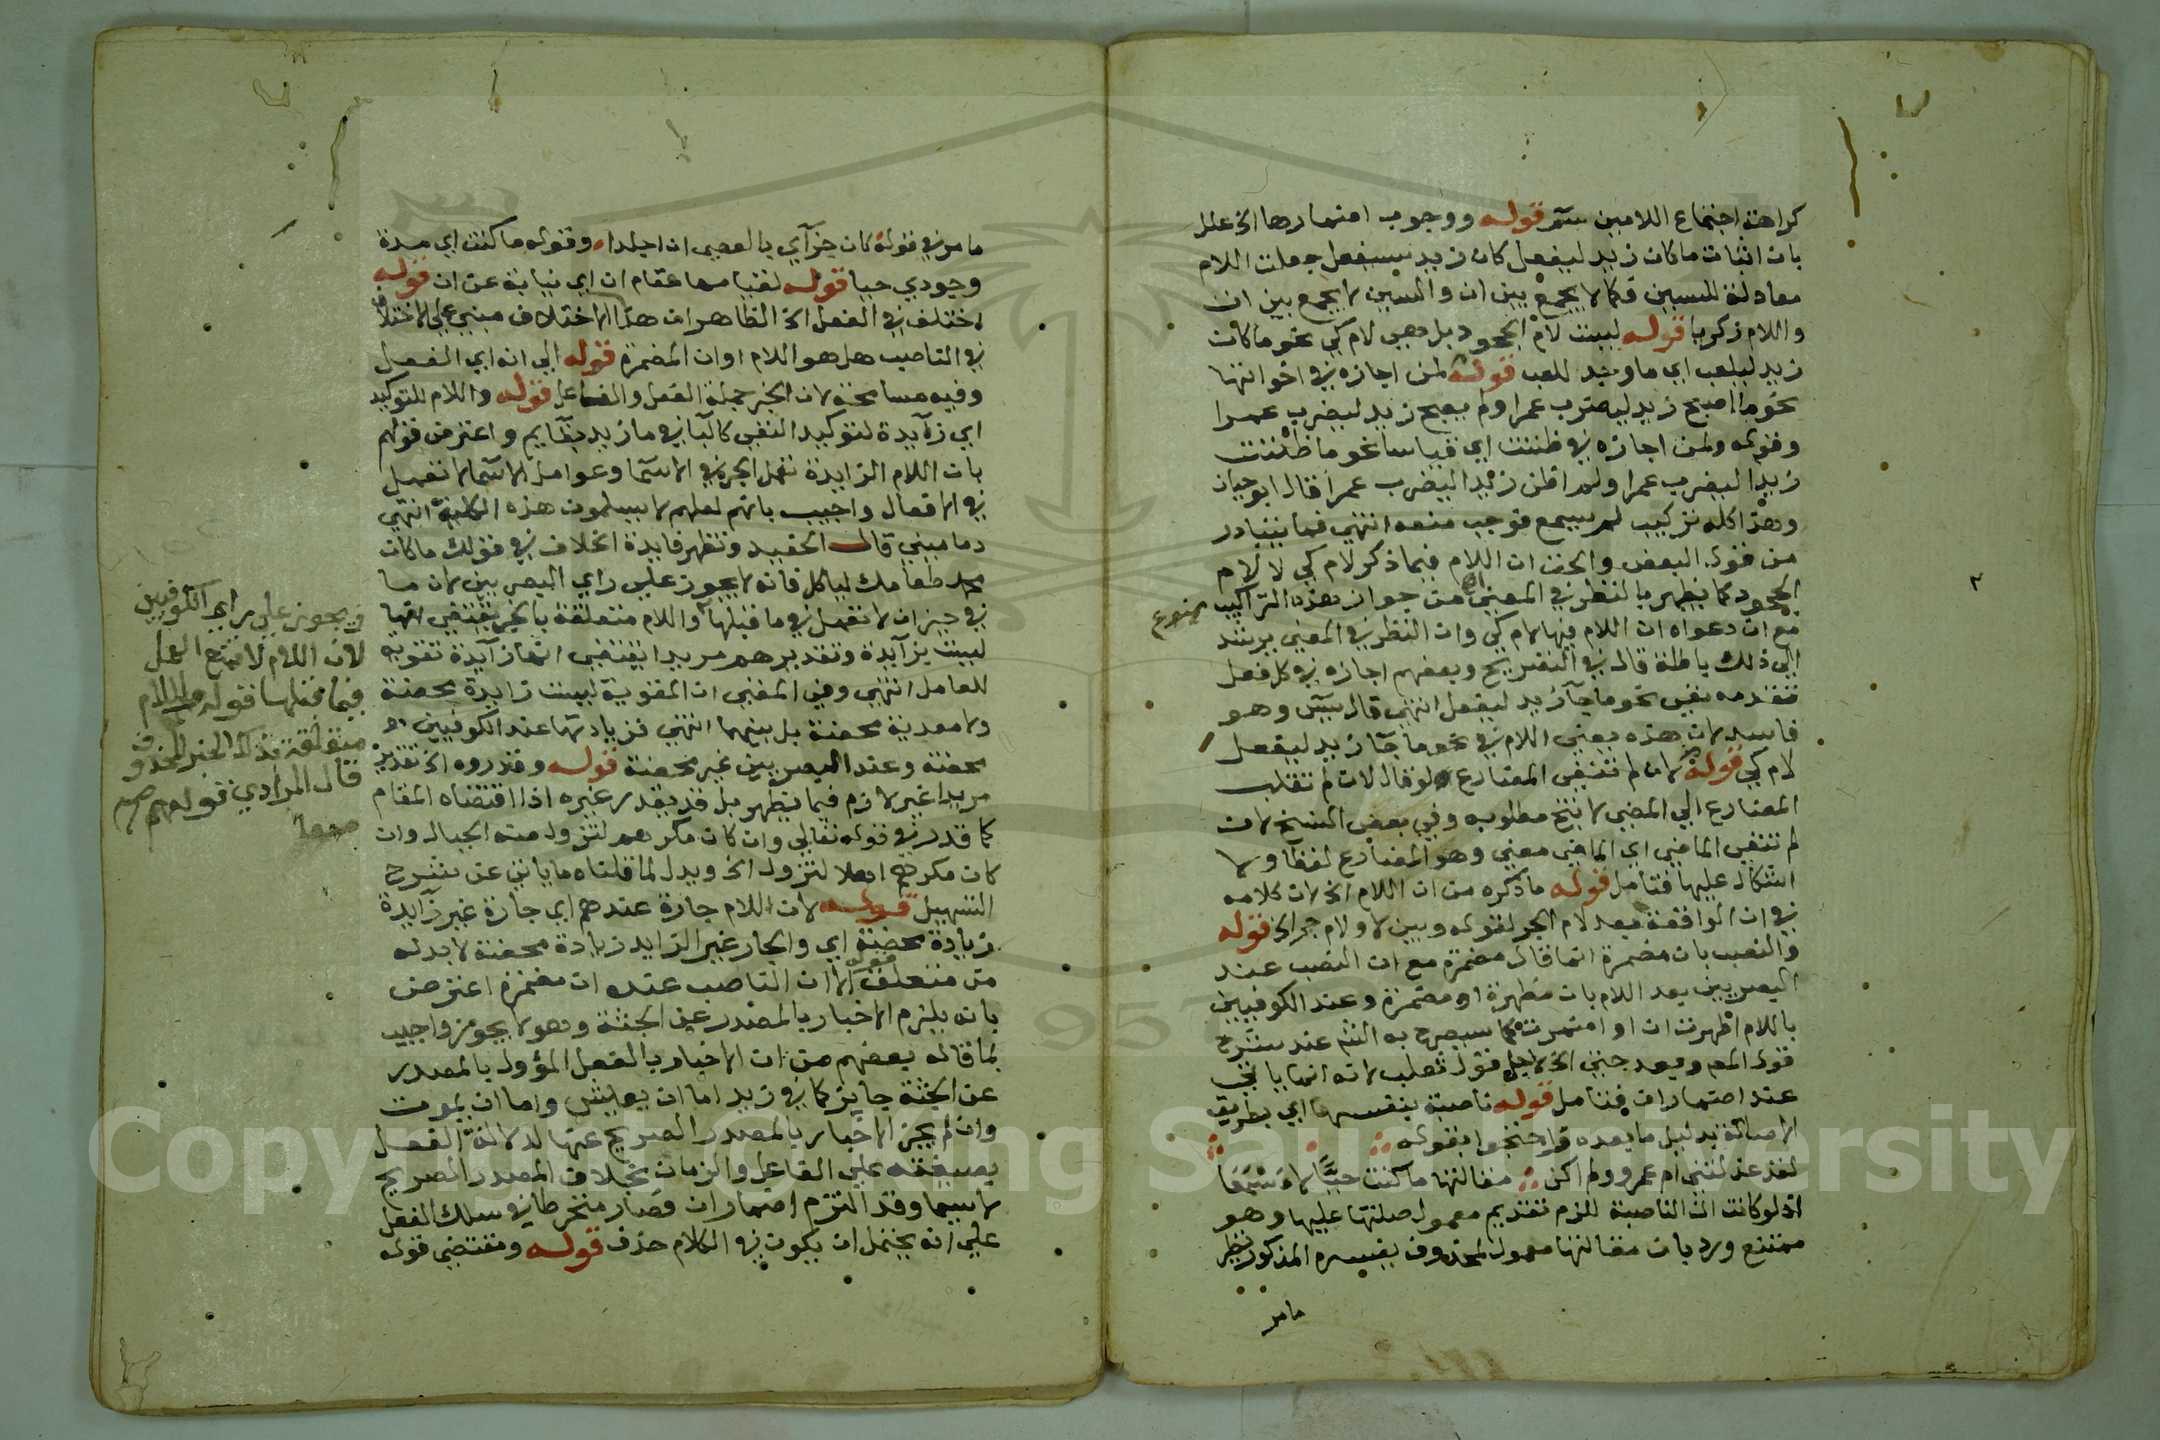 كراهة اجتماع اللامين سم قوله ووجوب اضمارها الخ علل
بان اثبات ماكان زيد ليفعل كان زيد سيفعل جعلت اللام
معادلة للسين فكما لا يجمع بين ان والسين لا يجمع بين ان
واللام زكريا قوله ليست لام الجحود بل هي لام كي نحو ما كان
زيد ليلعب اي ما وجد للعب قوله لمن اجازه في اخواتها
نحو ما اصبح زيد ليضرب عمرا ولم يصبح زيد ليضرب عمرا
وقوله ولمن اجازه في ظننت اي قياسا نحو ما ظننت
زيدا ليضرب عمرا ولم اظن زيدا ليضرب عمرا قال ابو حيان
وهذا كله تركيب لم يسمع فوجب منعه انتهى فما يتبادر
من قول البعض والحق ان اللام فيما ذكر لام كي لا لام
الجحود كما يظهر بالنظر في المعنى من جواز هذه التراكيب ممنوع
مع ان دعواه ان اللام فيها لام كي وان النظر في المعنى يرشد
الى ذلك باطلة قال في التصريح وبعضهم اجازه في كل فعل
تقدمه نفي نحو ما جآ زيد ليفعل انتهى قال يسٓ وهو
فاسد لان هذه بمعنى اللام في نحو ما جآ زيد ليفعل
لام كي قوله لان لم تنفي المضارع لو قال لان لم تقلب
المضارع الى المضي لا نتج مطلوبه وفي بعض النسخ لان
لم تنفي الماضي اي الماضي معنى وهو المضارع لفظا ولا
اشكال عليها فتامل قوله ما ذكره من ان اللام الخ لان كلامه
في ان الواقعة بعد لام الجر لقوله وبين لا ولام جر الخ قوله
والنصب بان مضمرة انما قال مضمرة مع ان النصب عند
البصريين بعد اللام بان مظهرة او مضمرة وعند الكوفيين
باللام اظهرت ان او اضمرت كما سيصرح به الشم عند شرح
قول المص وبعد حتى الخ لاجل قول ثعلب لانه انما ياتي
عند اضماران فتامل قوله ناصبة بنفسها اي بطريق
الاصالة بدليل ما بعده قوله احتجوا بقوله
لقد عذلتني ام عمرو ولم اكن مقالتها ما كنت حيًّا لاسْمَعَا
اذ لو كانت ان الناصبة للزم تقديم معمول صلتها عليها وهو
ممتنع ورد بان مقالتها معمول لمحذوف يفسره المذكور نظير
مامر
مامر في قوله كان جزآئي بالعصى ان اجلدا وقوله ما كنت اي مدة
وجودي حيا قوله لقيامها مقام ان اي نيابة عن ان قوله
اختلف في الفعل الخ الظاهر ان هذا الاختلاف مبني على الاختلاف
في الناصب هل هو اللام او ان المضمرة قوله الى انه اي الفعل
وفيه مسامحة لان الخبر جملة الفعل والفاعل قوله واللام للتوكيد
اي زآيدة لتوكيد النفي كالبا في ما زيد بقآيم واعترض قولهم
بان اللام الزايدة تعمل الجر في الاسما وعوامل الاسما لا تعمل
في الافعال واجيب بانهم لعلهم لا يسلمون هذه الكلية انتهى
دماميني قال الحفيد وتظهر فايدة الخلاف في قولك ما كان
محمد طعامك لياكل فانه لا يجوز على راي البصريين لان ما
في حيز ان لا تعمل في ما قبلها واللام متعلقة بالخبر يقتضي انها
ليست بزآيدة وتقديرهم مريدا يقتضي انها زآيدة تقوية
للعامل انتهى وفي المغني ان المقوية ليست زايدة محضة
ولا معدية محضة بل بينهما انتهى فزيادتها عند الكوفيين
محضة وعند البصريين غير محضة قوله وقدروه الخ تقدير
مريدا غير لازم فيما يظهر بل قد يقدر غيره اذا اقتضاه المقام
كما قدر في قوله تعالى وان كان مكرهم لتزول منه الجبال وان
كان مكرهم اهلا لتزول الخ ويدل لما قلناه ما ياتي عن شرح
التسهيل قوله لان اللام جارة عندهم اي جارة غير زآيدة
زيادة محضة اي والجار غير الزايد زيادة محضة لا بد له
من متعلق قوله الا ان الناصب عنده ان مضمرة اعترض
بان يلزم الاخبار بالمصدر عن الجثة وهو لا يجوز واجيب
بما قاله بعضهم من ان الاخبار بالفعل المؤول بالمصدر
عن الجثة جايز كما في زيد اما ان يعيش واما ان يموت
وان لم يجز الاخبار بالمصدر الصريح عنها لدلالة الفعل
بصيغته على الفاعل والزمان بخلاف المصدر الصريح
لا سيما وقد التزم اضماران فصار منخرطا في سلك الفعل
على انه يحتمل ان يكون في الكلام حذف قوله ومقتضى قوله
ويجوز على راي الكوفيين
لان اللام لا تمنع العمل
فيما قبلها قوله واللام
متعلقة بذلك الخبر المحذوف
قال المرادي قولهم
Copyright © King Saud University
1957